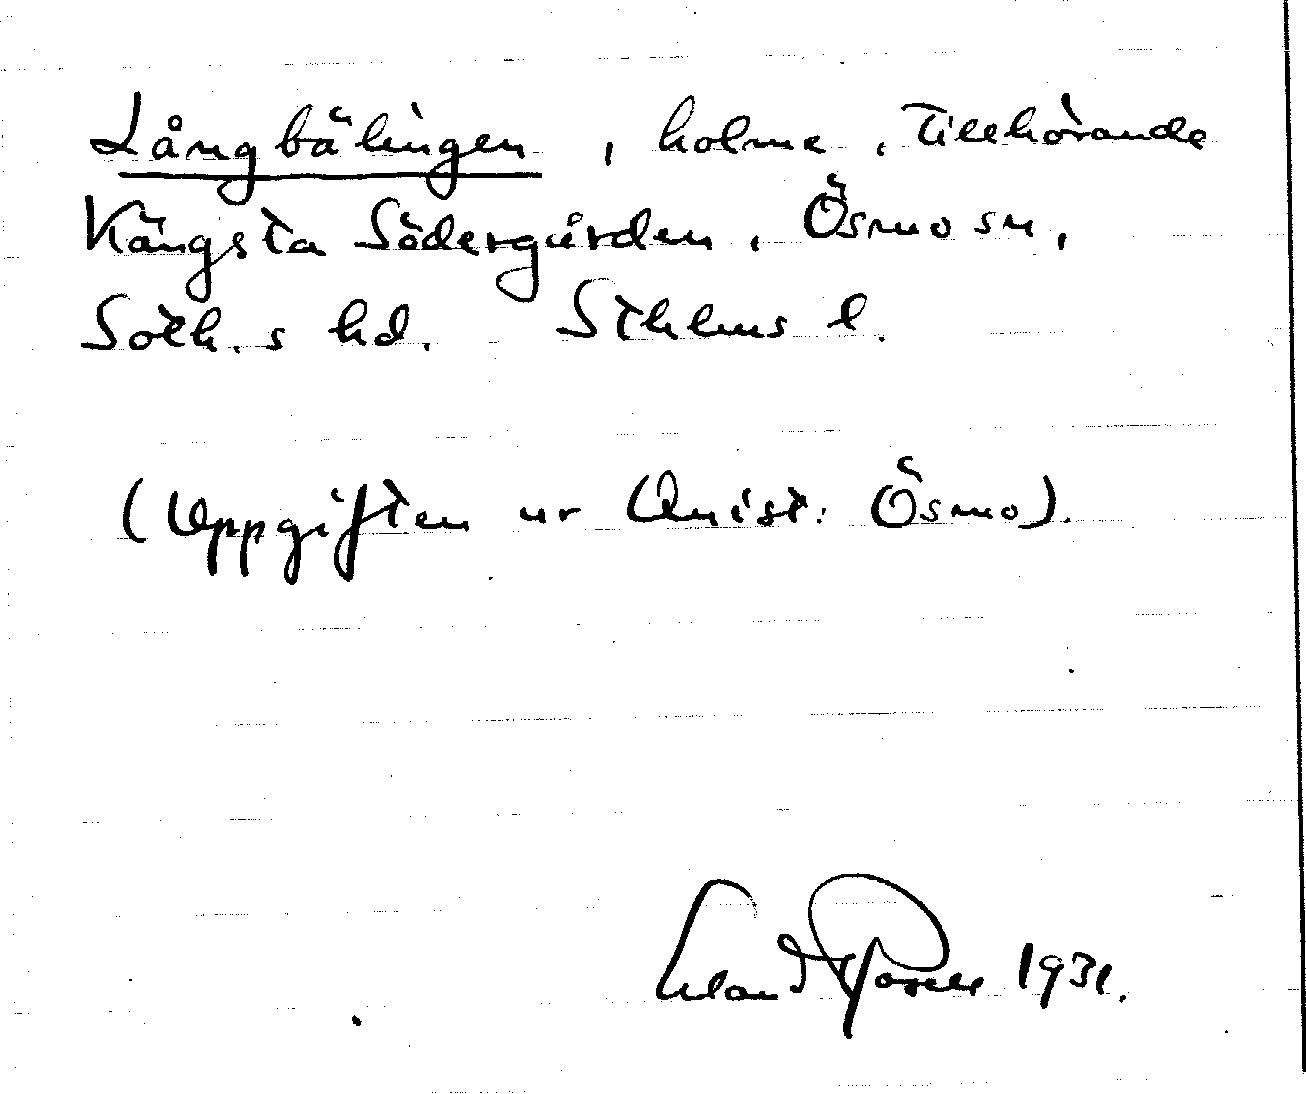 Långbälingen, holme, tillhörande
Kängsta Södergården, Ösmo sn,
Soth.s hd. Sthlms l.
(Uppgiften ur Qvist: Ösmo).
1931.